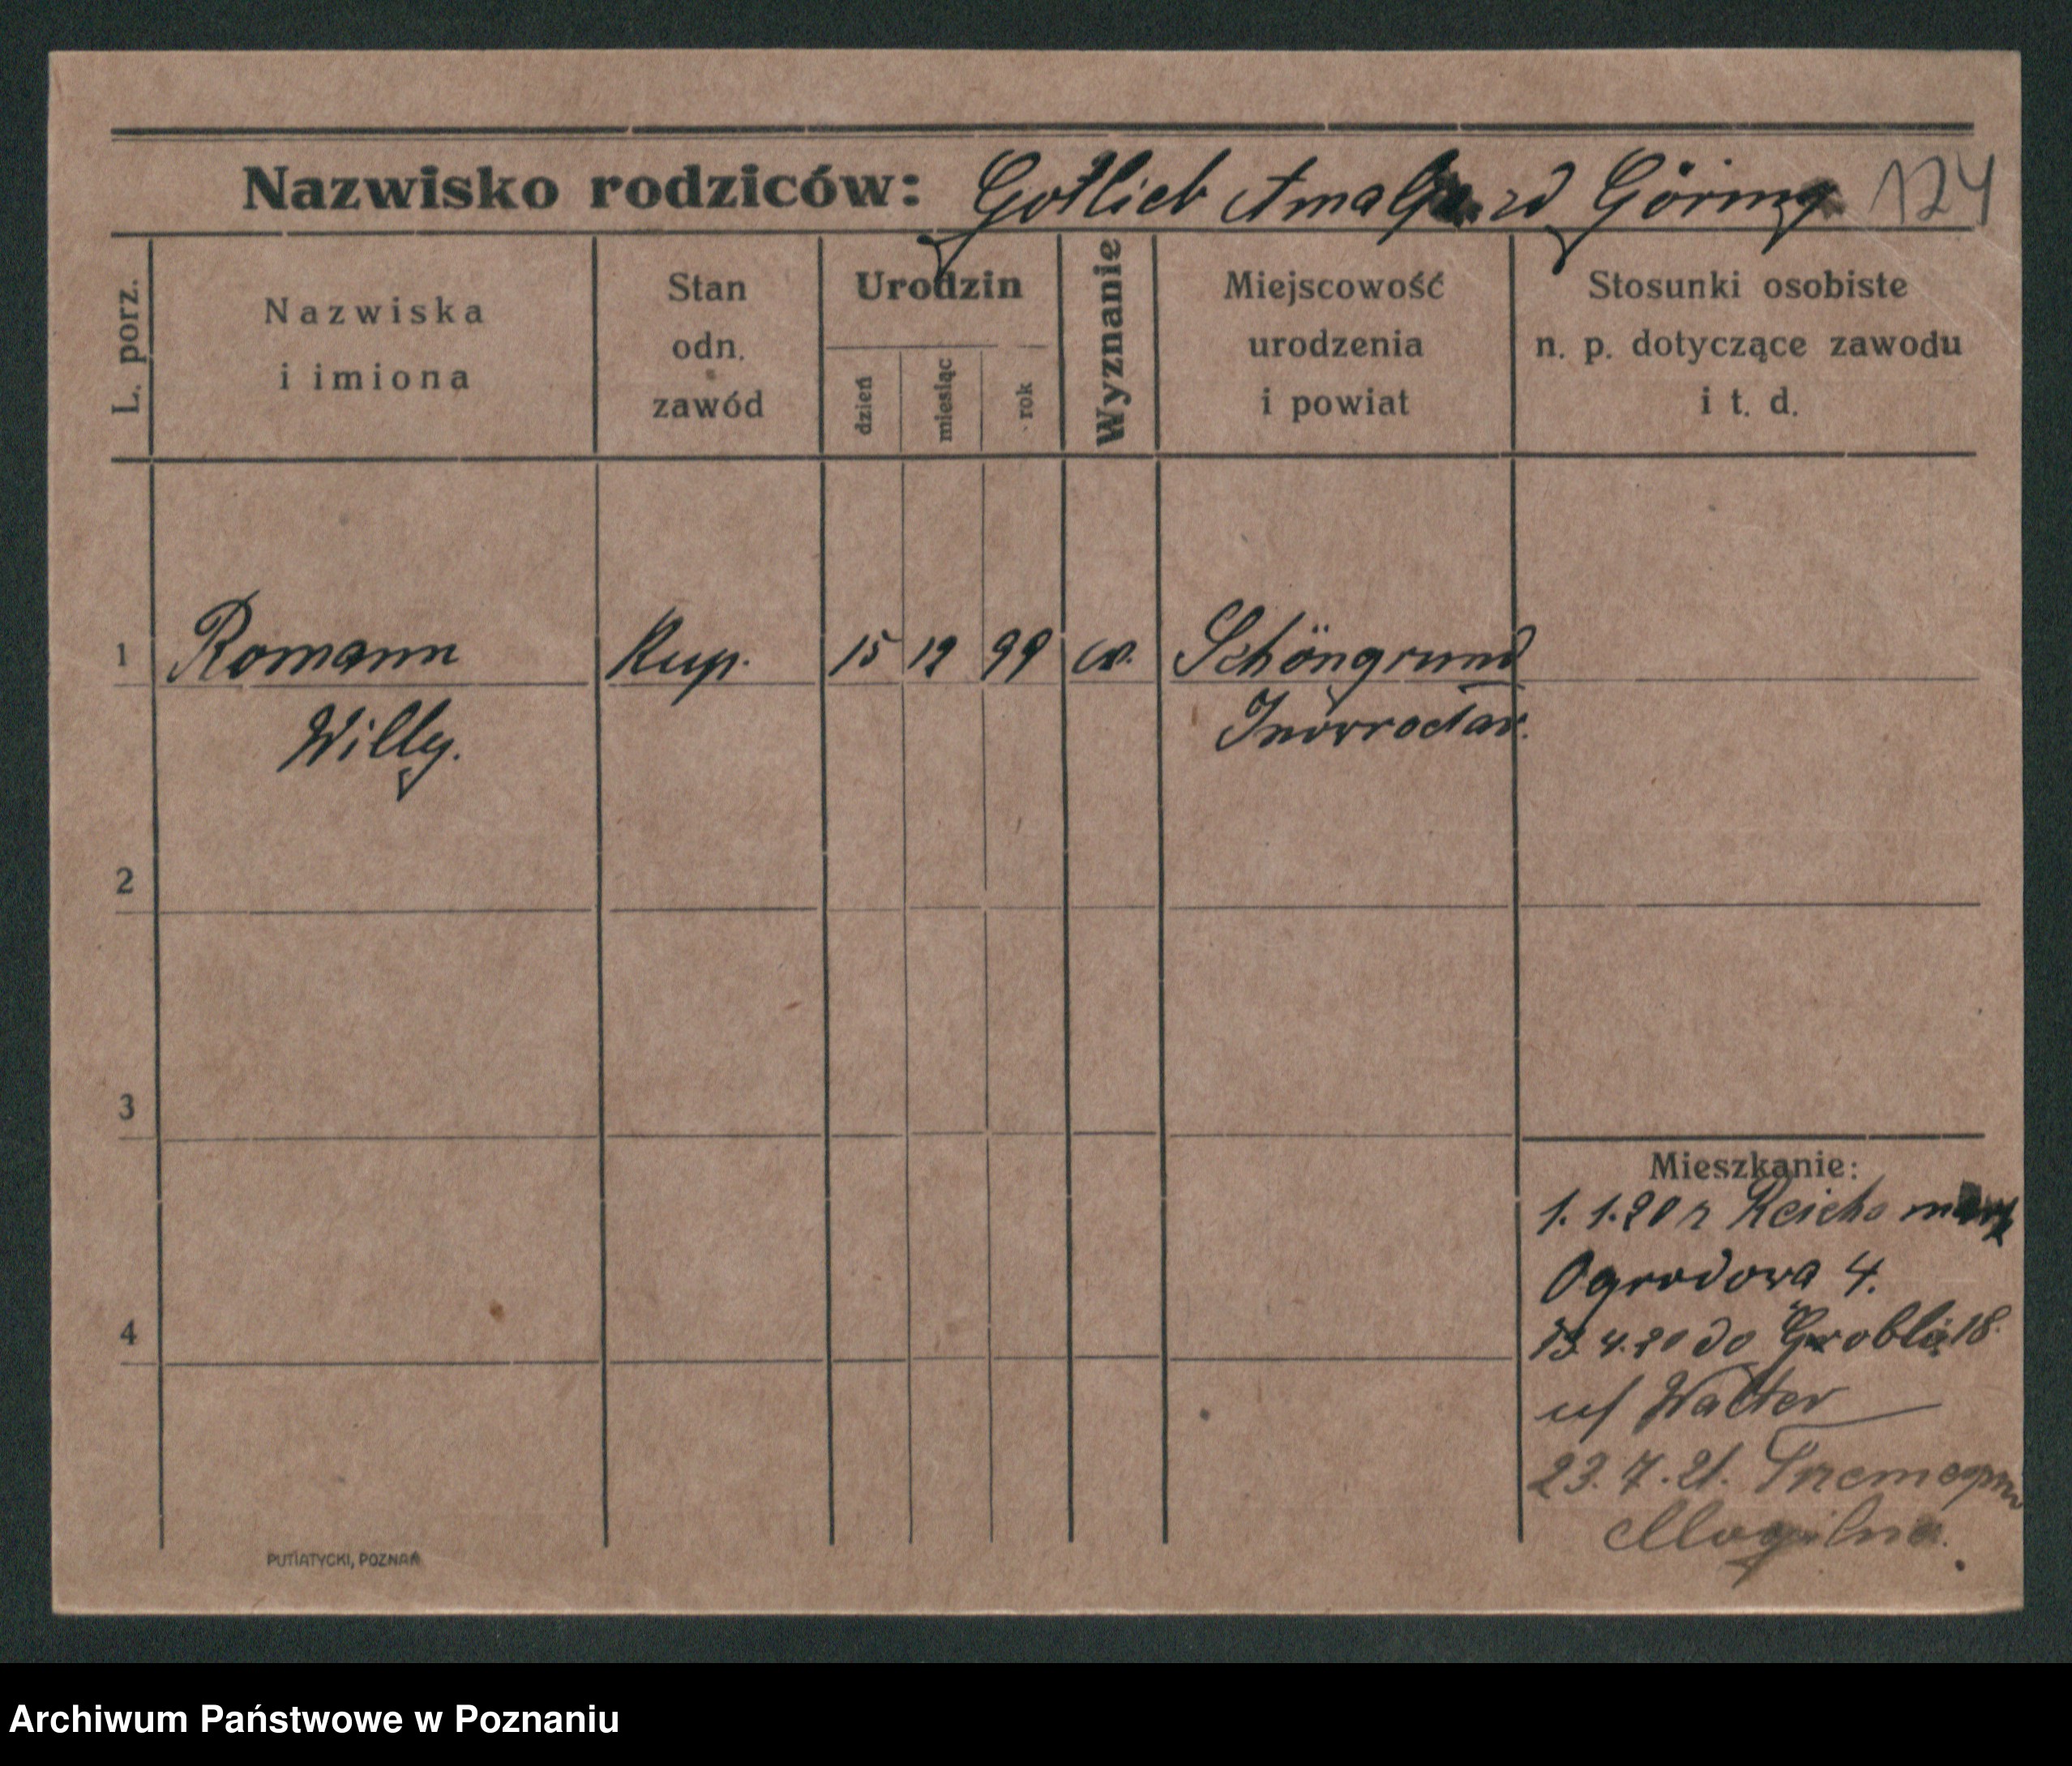 Nazwisko rodziców: Gotlieb Amal zd Göring 124
L. porz.
Nazwiska
i imiona
Stan
odn.
zawód
Urodzin
dzień
miesiąc
rok
Wyznanie
Miejscowość
urodzenia
i powiat
Stosunki osobiste
n. p. dotyczące zawodu
i t. d.
1 Romann Kup. 15 12 99 ew. Schöngrund
Willy. Inowrocław.
2
3
Mieszkanie:
1. 1. 20 z
Ogrodowa 4.
4
13. 4. 20 do Grobla 18.
u/ Walter
23. 7. 21.
Mogilna.
PUTIATYCKI, POZNAŃ
Archiwum Państwowe w Poznaniu